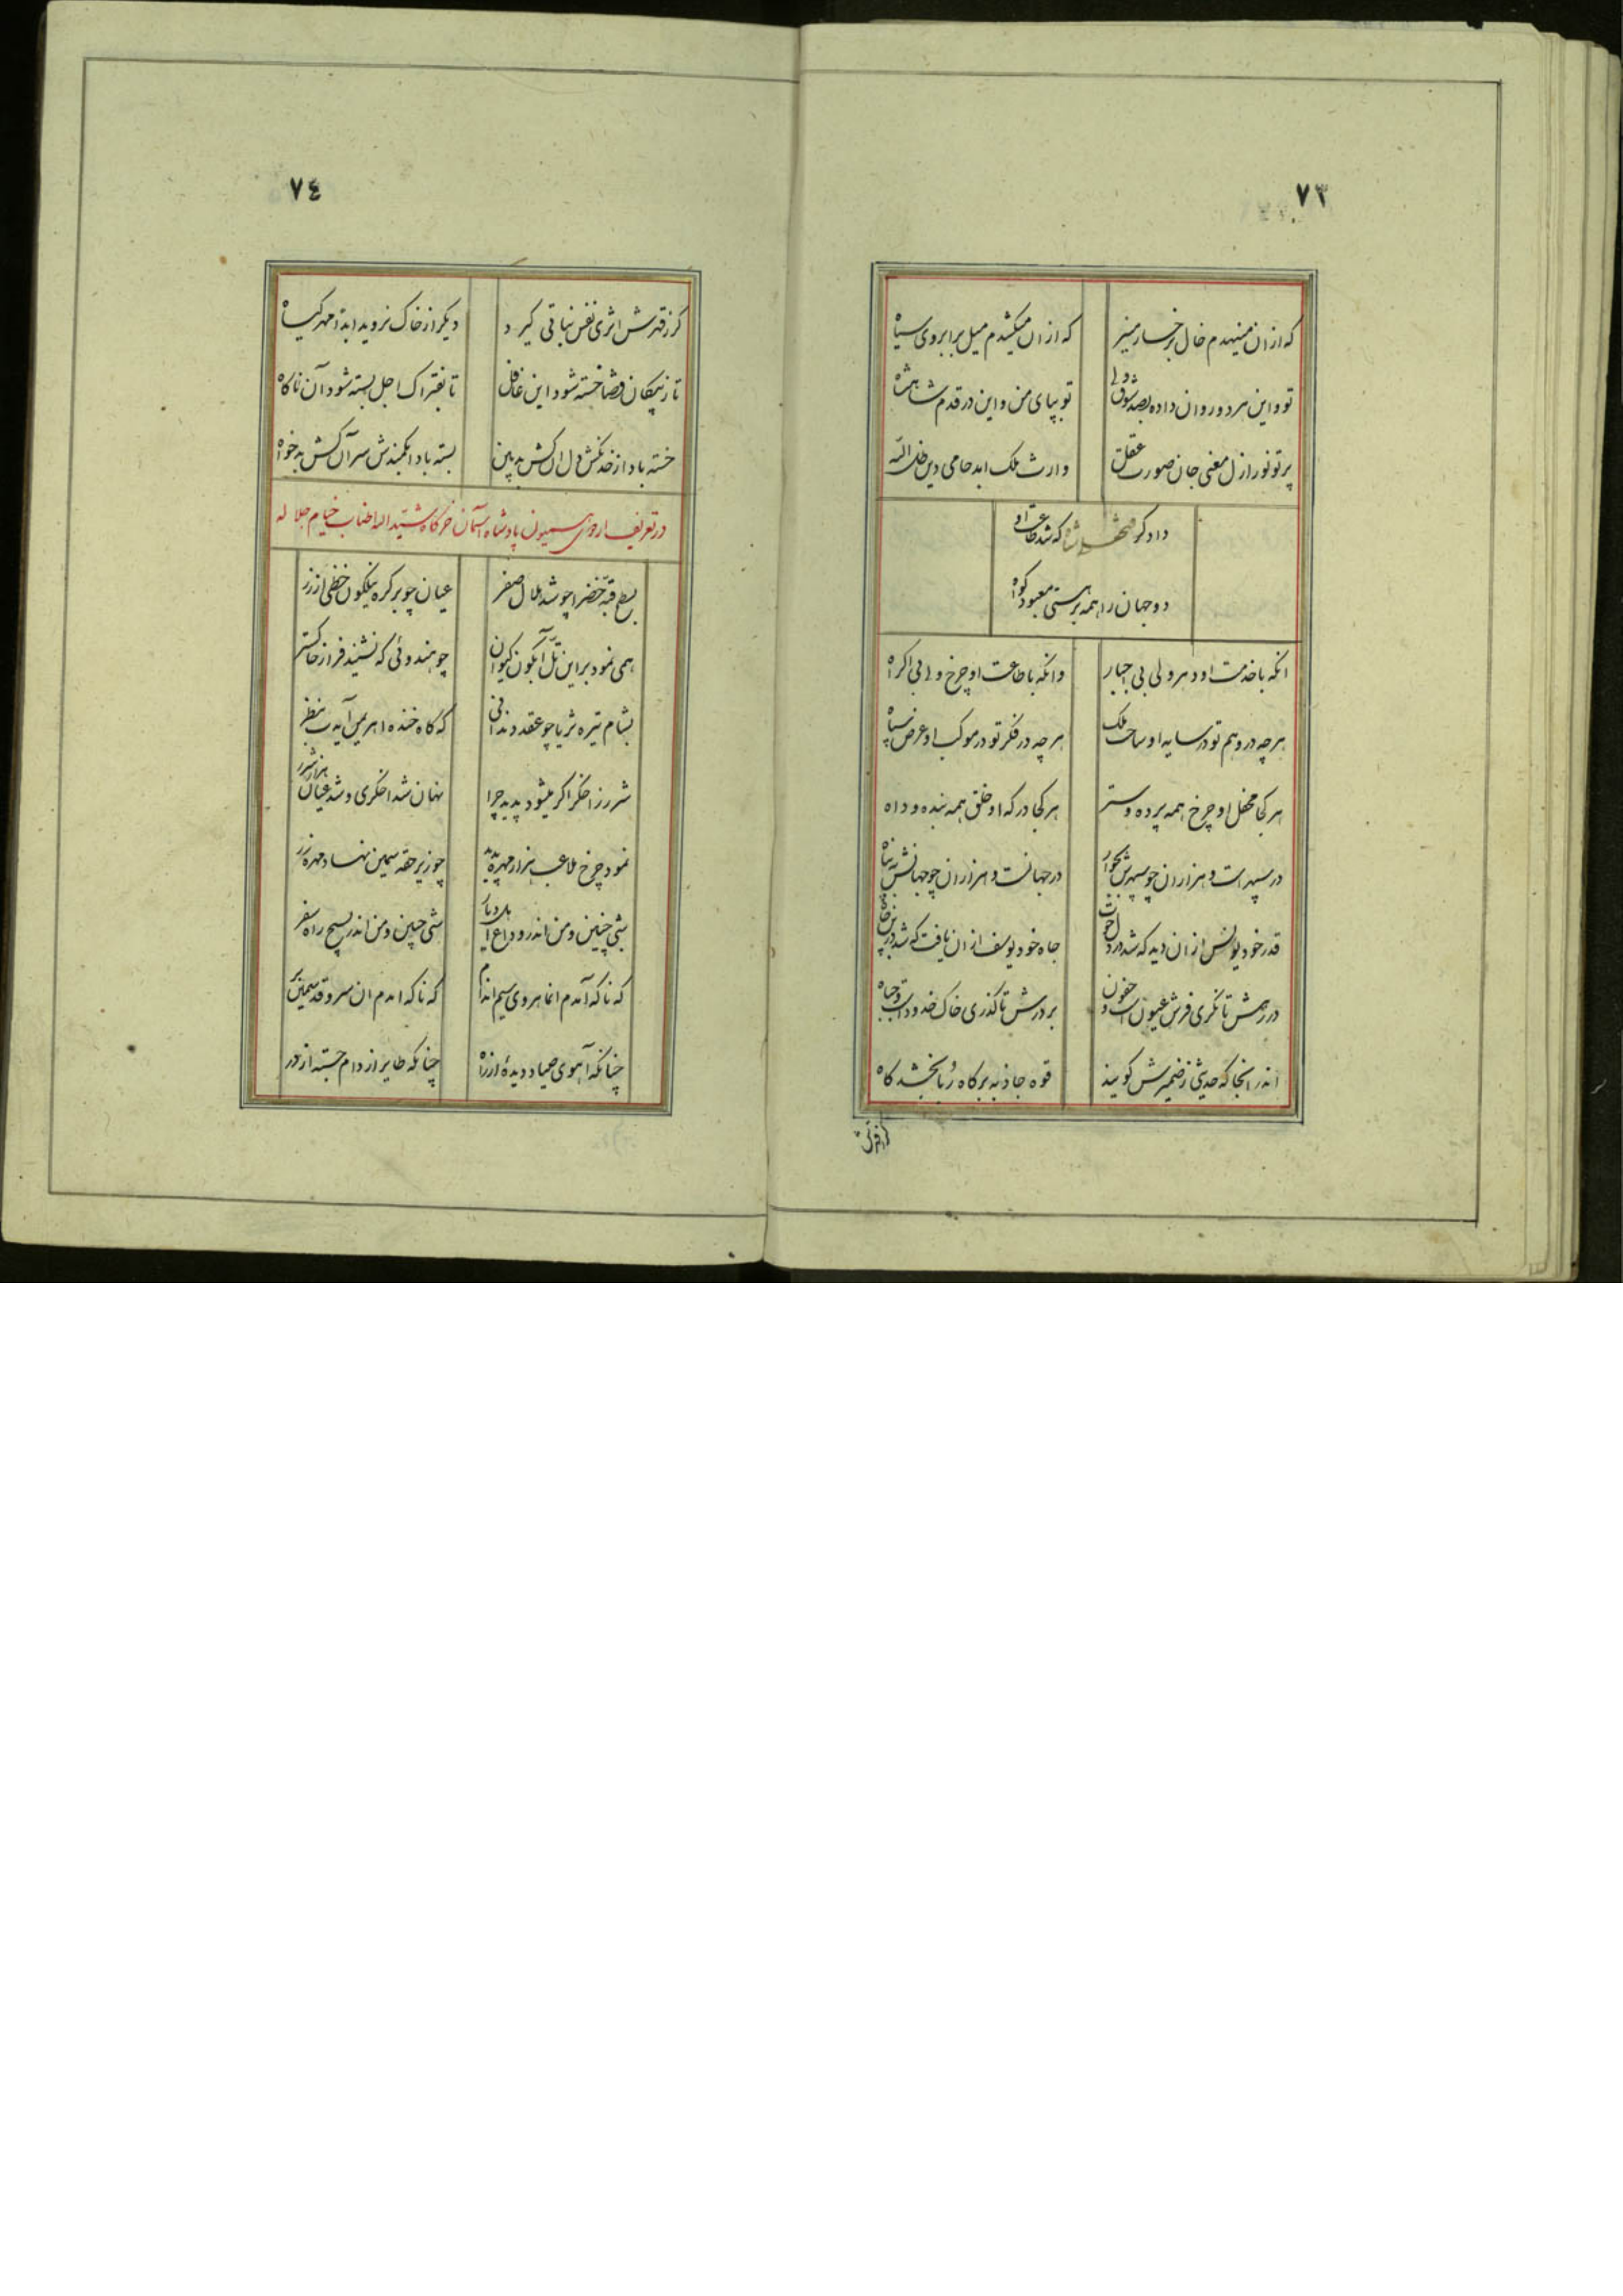 ٧٣
که ازان مینهدم خال برخسار منیر که ازان میکشدم میل برابروی سیاه
تو واین هر دو روان داده بصد شوق ولی تو بپای من و این در قدم شاهنشاه
پرتو نور ازل معنی جان صورت عقل وارث ملک ابد حامی دین ظل الله
دادگر فتحعلیشاه که شد طاعت او
دو جهان را همه بر هستی معبود گواه
انکه با خدمت او دهر ولی بی اجبار وانکه با طاعت او چرخ ولی بی اکراه
هر چه در وهم تو در سایه او ساحت ملک هر چه در فکر تو در موکب او عرض سپاه
هر کجا محفل او چرخ همه پرده و ستر هر کجا درکه او خلق همه بنده و داه
در سپهر است و هزاران چو سپهرش بجوار در جهانست و هزاران چو جهانش به پناه
قدر خود یونس ازان دید که شد در دل حوت جاه خود یوسف ازان یافت که شد در بن چاه
در رهش تا نگری فرش عیون است و جفون بر درش تا گذری خاک خدود است و جباه
اندر انجا که حدیثی ز ضمیرش کویند قوه جاذبه بر کاه ربا بخشد کاه
کر ز قهرش
٧٤
کر ز قهرش اثری نفس نباتی کیرد دیکر از خاک نروید ابدا مهر کیاه
تا ز پیکان قضا خسته شود این غافل تا بفتراک اجل بسته شود آن ناکاه
خسته باد از خدنکش دل ان کش بدبین بسته باد ابکمندش سر آن کش بدخواه
در تعریف اردوی همیون پادشاه آسمان خرکاه شید الله اطناب خیام جلاله
بسطح قبه خضرا چو شد هلال صفر عیان چو بر کره نیلکون خطی از زر
همی نمود بر این تل آبکون کیوان چو هندوئی که نشیند فراز خاکستر
بشام تیره ثریا چو عقد دندانی که کاه خنده اهریمن آید بنظر
شرر ز اخکر اکر میشود پدید چرا نهان شد اخکری و شد عیان هزار شرر
نمود چرخ ملاعب هزار مهره پدید چو زیر حقه سیمین نهاد مهره زر
شبی چنین و من اندر وداع یار و دیار شبی چنین و من اندر بسیج راه سفر
که ناکه آمدم انماهروی سیم اندام که ناکه امدم ان سرو قد سیمین بر
چنانکه آهوی صیاد دیده از راه چنانکه طایر از دام جسته از در